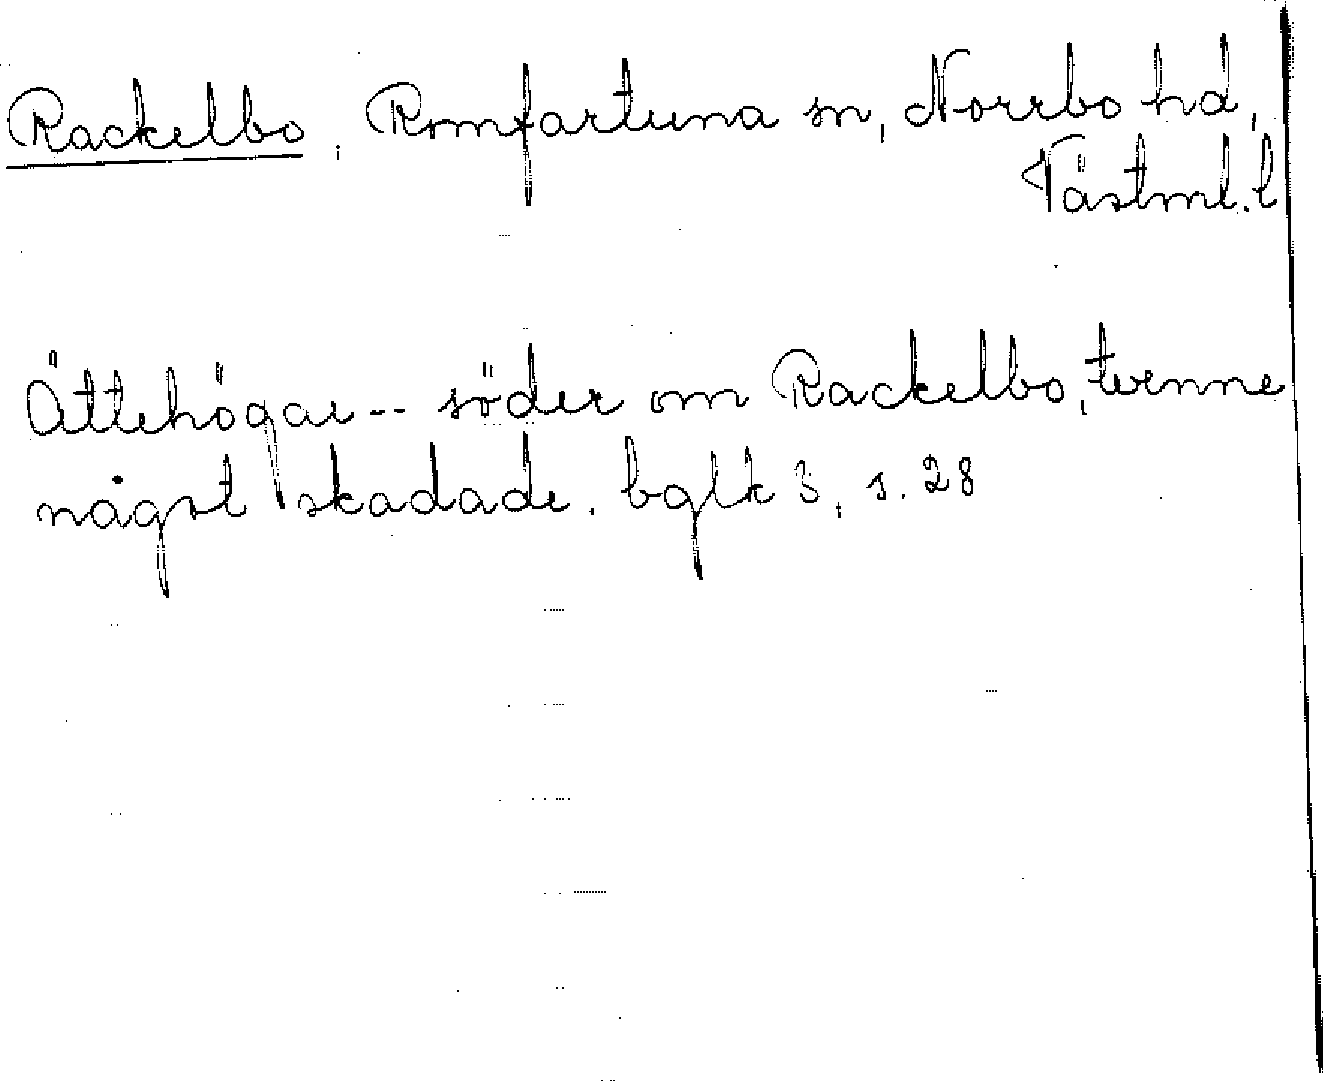 Rackelbo, Romfartuna sn, Norrbo hd,
Västml. l
Ättehögar -- söder om Rackelbo, tvenne
något skadade. bglk 3, s. 28